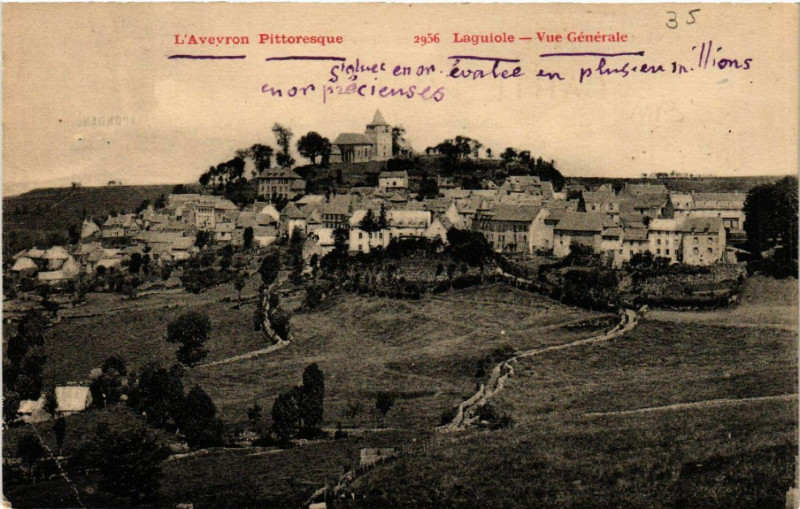 35
L'Aveyron Pittoresque 2956 Laguiole — Vue Générale
en or évatée en plusieur millions
en or précienses